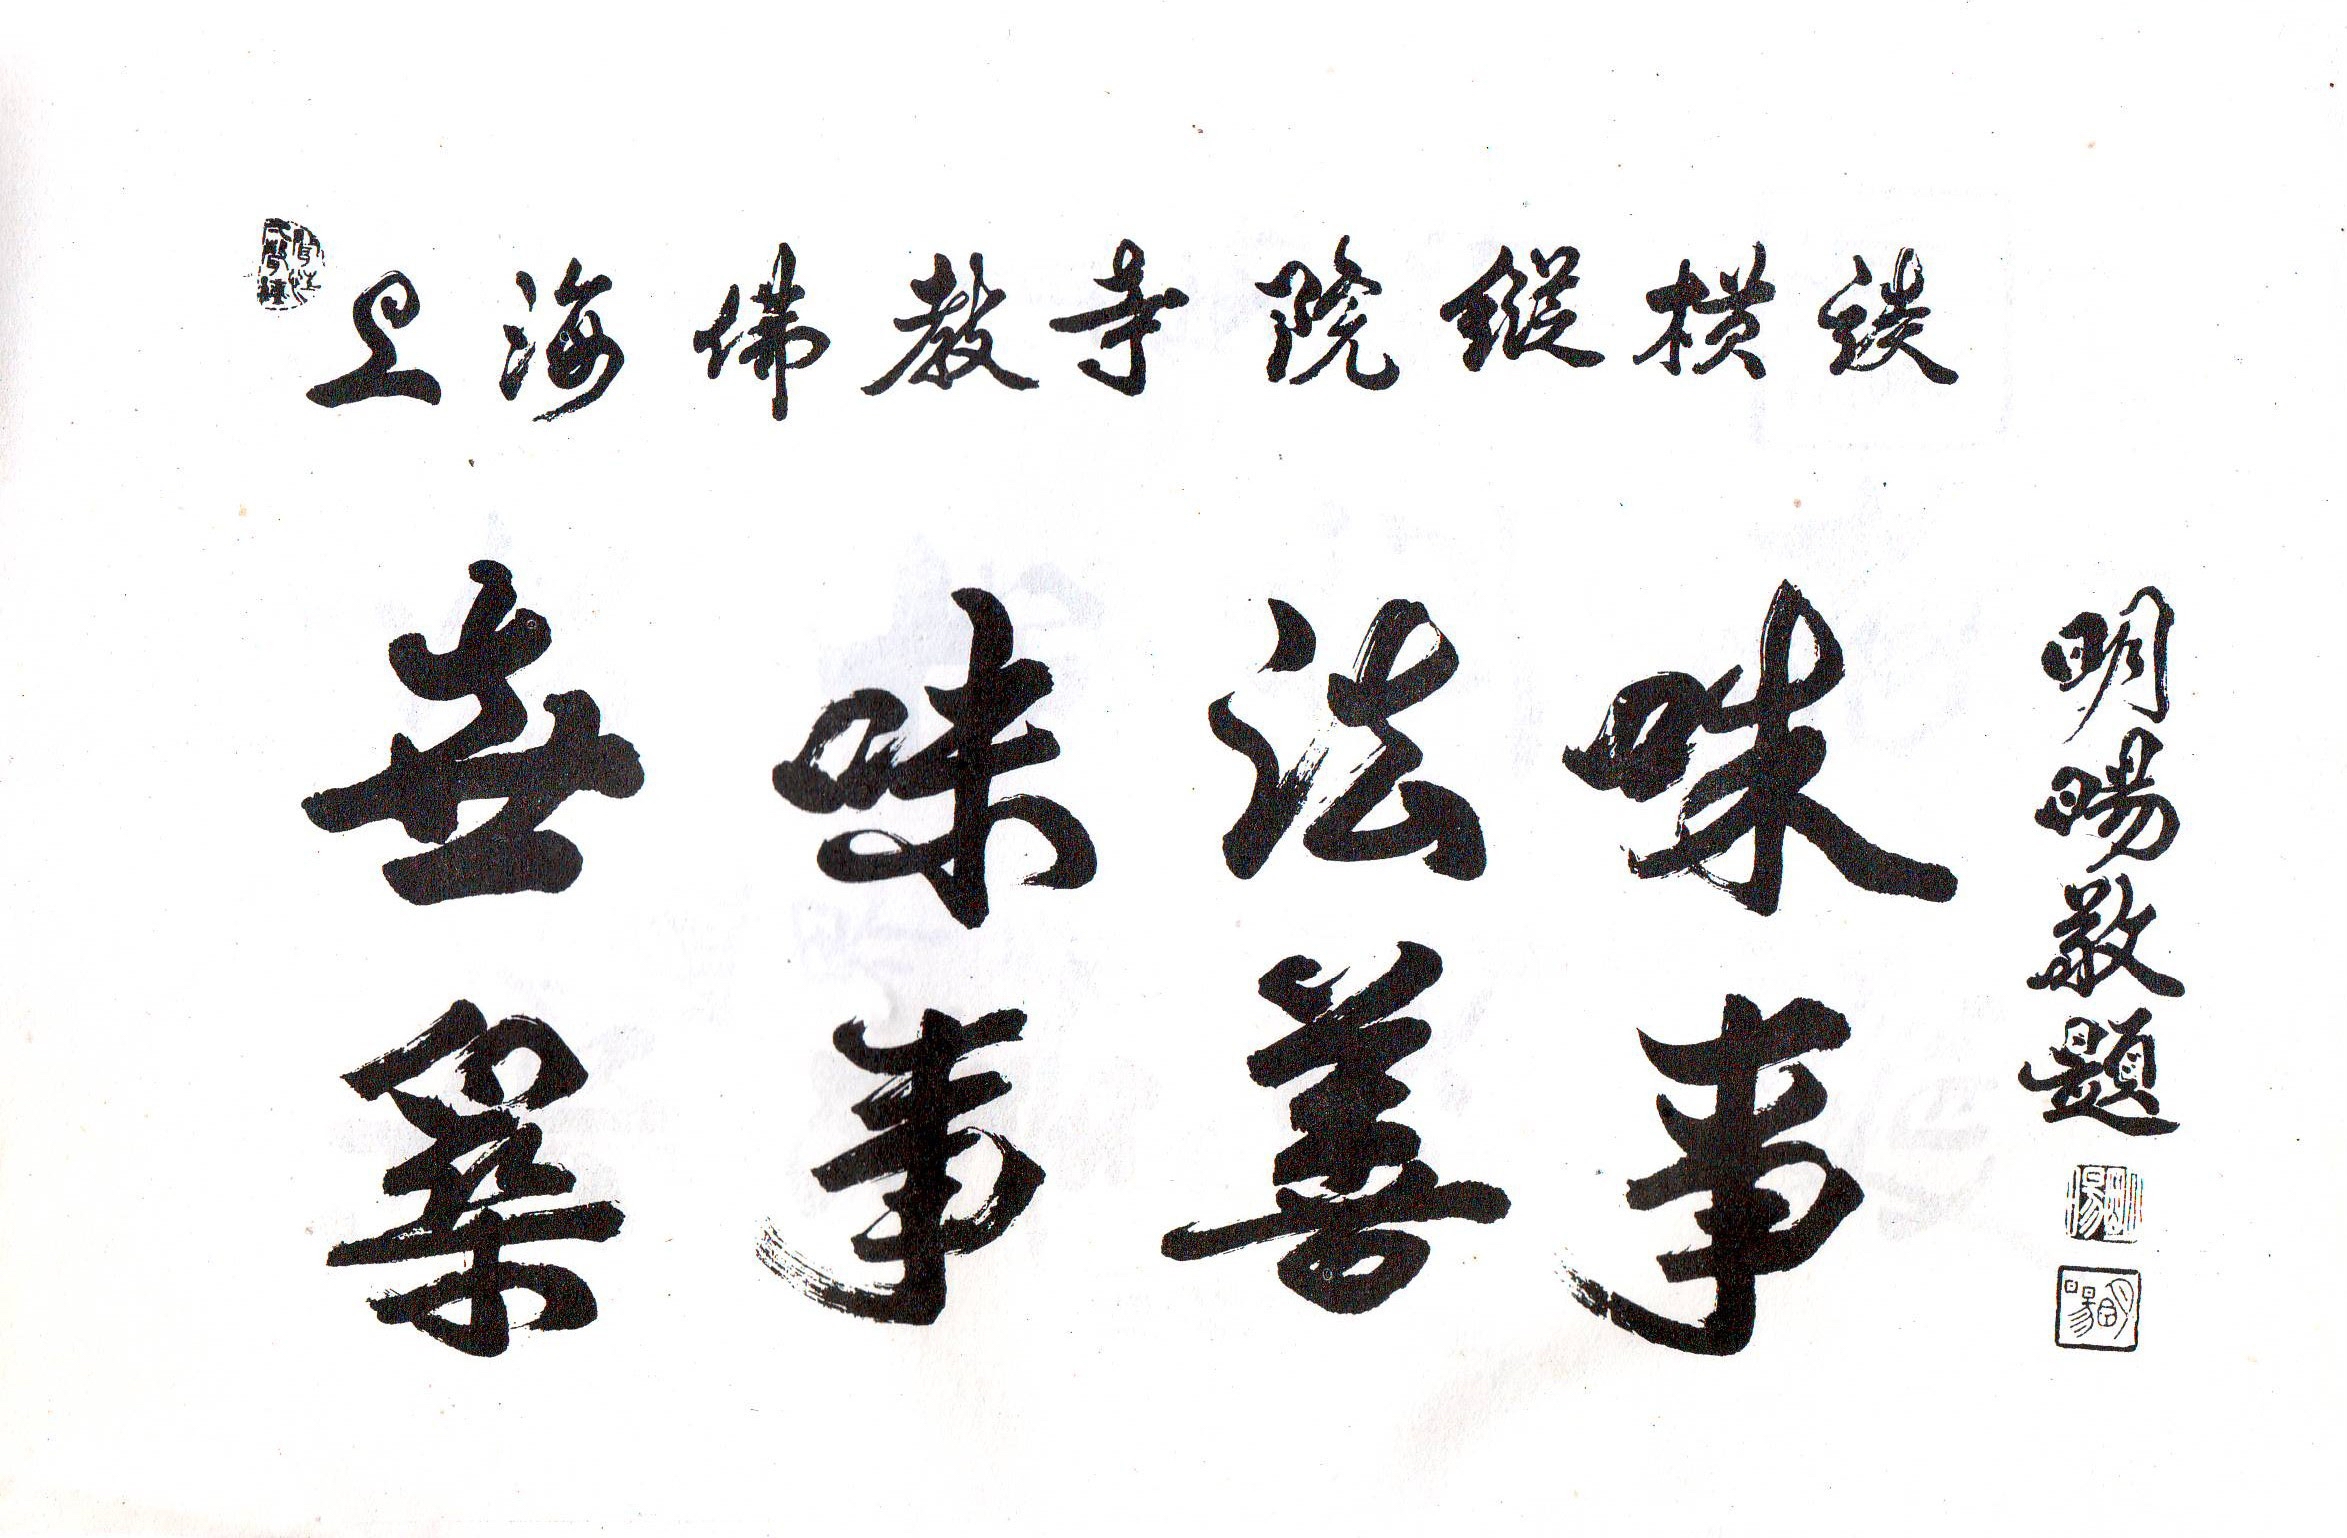 上海佛教寺院縱橫談
無味法味
事善事
明暘敬題
明暘